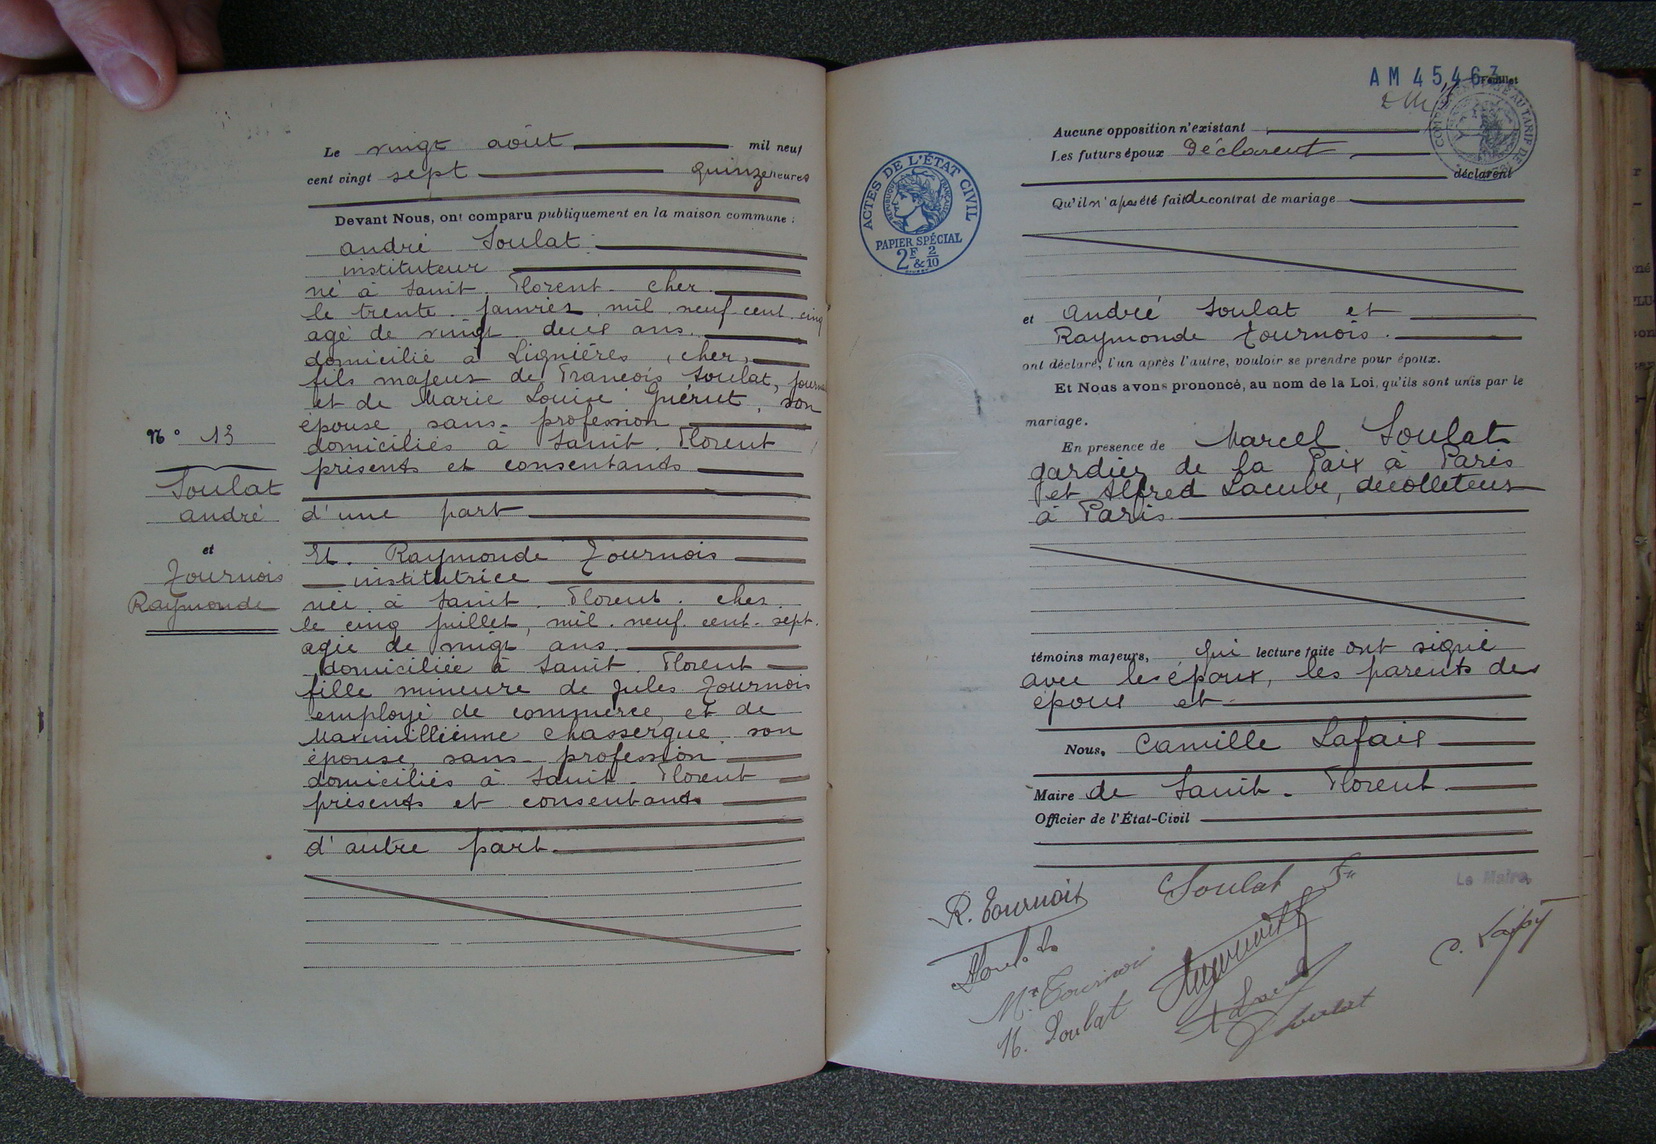 Le vingt août mil neuf
cent vingt sept quinze heures
Devant Nous, ont comparu publiquement en la maison commune :
andré Soulat
instituteur
né à Saint Florent cher
le trente janvier mil neuf cent cinq
agé de vingt deux ans
domicilié à Lignières (cher)
fils majeur de François Soulat,
et de Marie Louise son
épouse sans profession
domiciliés à Saint Florent
présents et consentants
d'une part
N° 13
Soulat
andré
et
Tournois
Raymonde
Et Raymonde Tournois
institutrice
née à Saint Florent cher
le cinq juillet, mil neuf cent sept
agée de vingt ans
domiciliée à Saint Florent
fille mineure de Jules Tournois
employé de commerce et de
Maximillienne son
épouse, sans profession
domiciliés à Saint Florent
présents et consentants
d'autre part
AM 45463
Feuillet
Aucune opposition n'existant
Les futurs époux Déclarent
déclarent
Qu'il n'a pas été fait de contrat de mariage
ACTES DE L'ÉTAT CIVIL
PAPIER SPÉCIAL
2F & 2/10
et André Soulat et
Raymonde Tournois
ont déclaré, l'un après l'autre, vouloir se prendre pour époux.
Et Nous avons prononcé, au nom de la Loi, qu'ils sont unis par le
mariage.
En presence de Marcel Soulat
gardien de la Paix à Paris
et Alfred Lacube, décolleteur
à Paris
témoins majeurs, qui lecture faite ont signé
avec les époux, les parents des
époux et
Nous, Camille Lafaix
Maire de Saint-Florent
Officier de l'État-Civil
Le Maire,
R. Tournois
Soulat
M. Soulat
Soulat